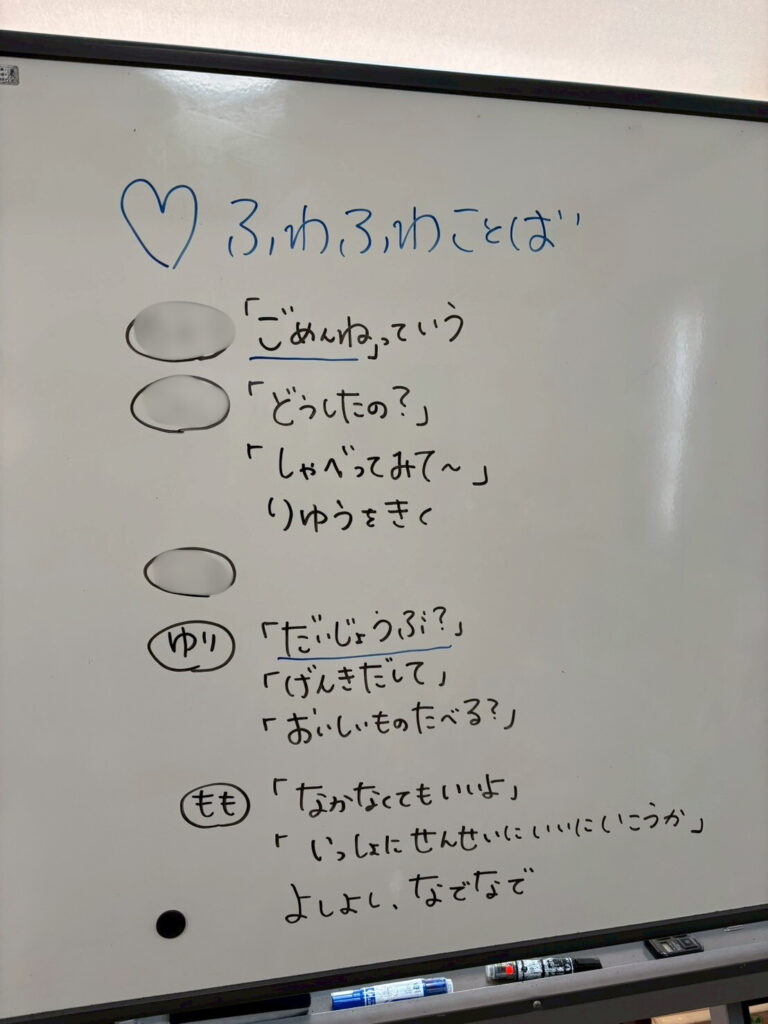 ♡ ふわふわことば
「ごめんね」っていう
「どうしたの？」
「しゃべってみて～」
りゆうをきく
ゆり 「だいじょうぶ？」
「げんきだして」
「おいしいものたべる？」
もも 「なかなくてもいいよ」
「いっしょにせんせいにいいにいこうか」
よしよし、なでなで